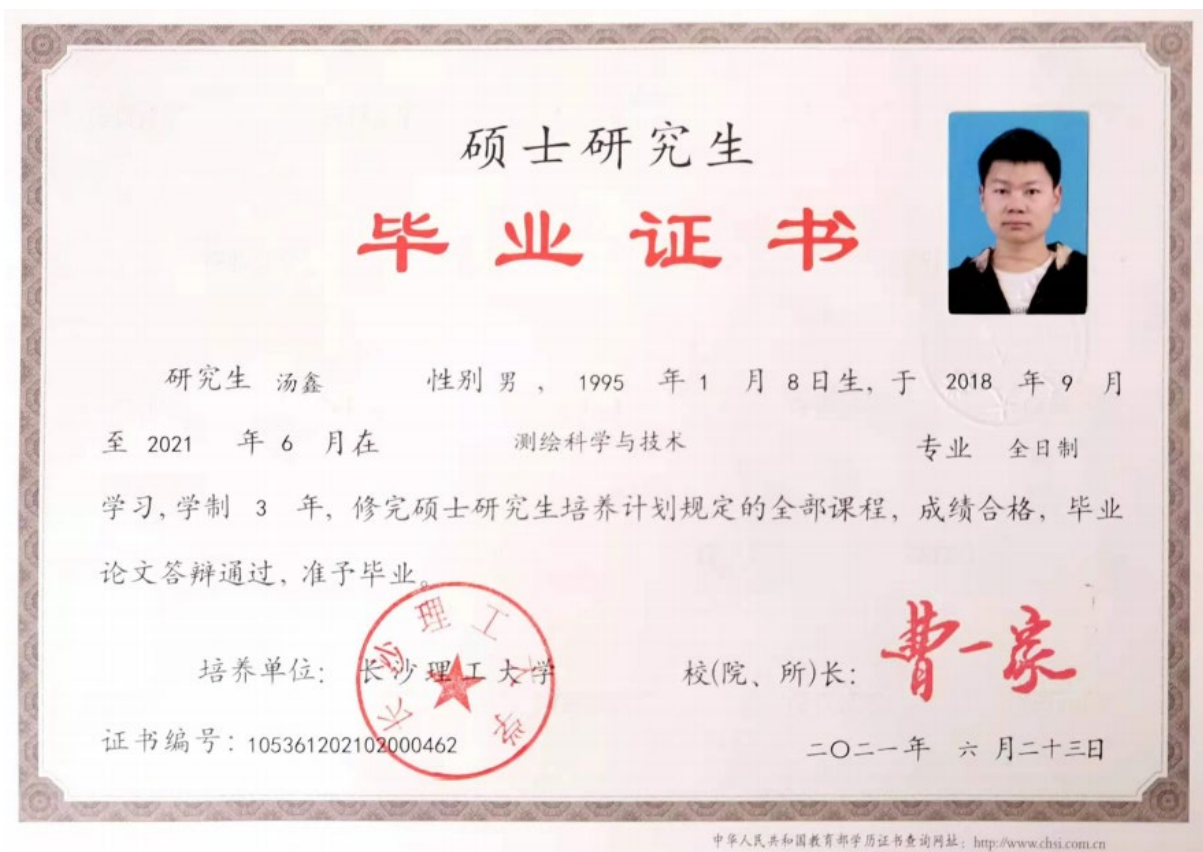 硕士研究生
毕业证书
研究生 汤鑫 性别 男 , 1995 年 1 月 8 日生, 于 2018 年 9 月
至 2021 年 6 月在 测绘科学与技术 专业 全日制
学习, 学制 3 年, 修完硕士研究生培养计划规定的全部课程, 成绩合格, 毕业
论文答辩通过, 准予毕业。
长沙理工大学
培养单位: 长沙理工大学 校(院、所)长: 曹一家
证书编号: 105361202102000462 二〇二一年 六 月二十三日
中华人民共和国教育部学历证书查询网址: http://www.chsi.com.cn